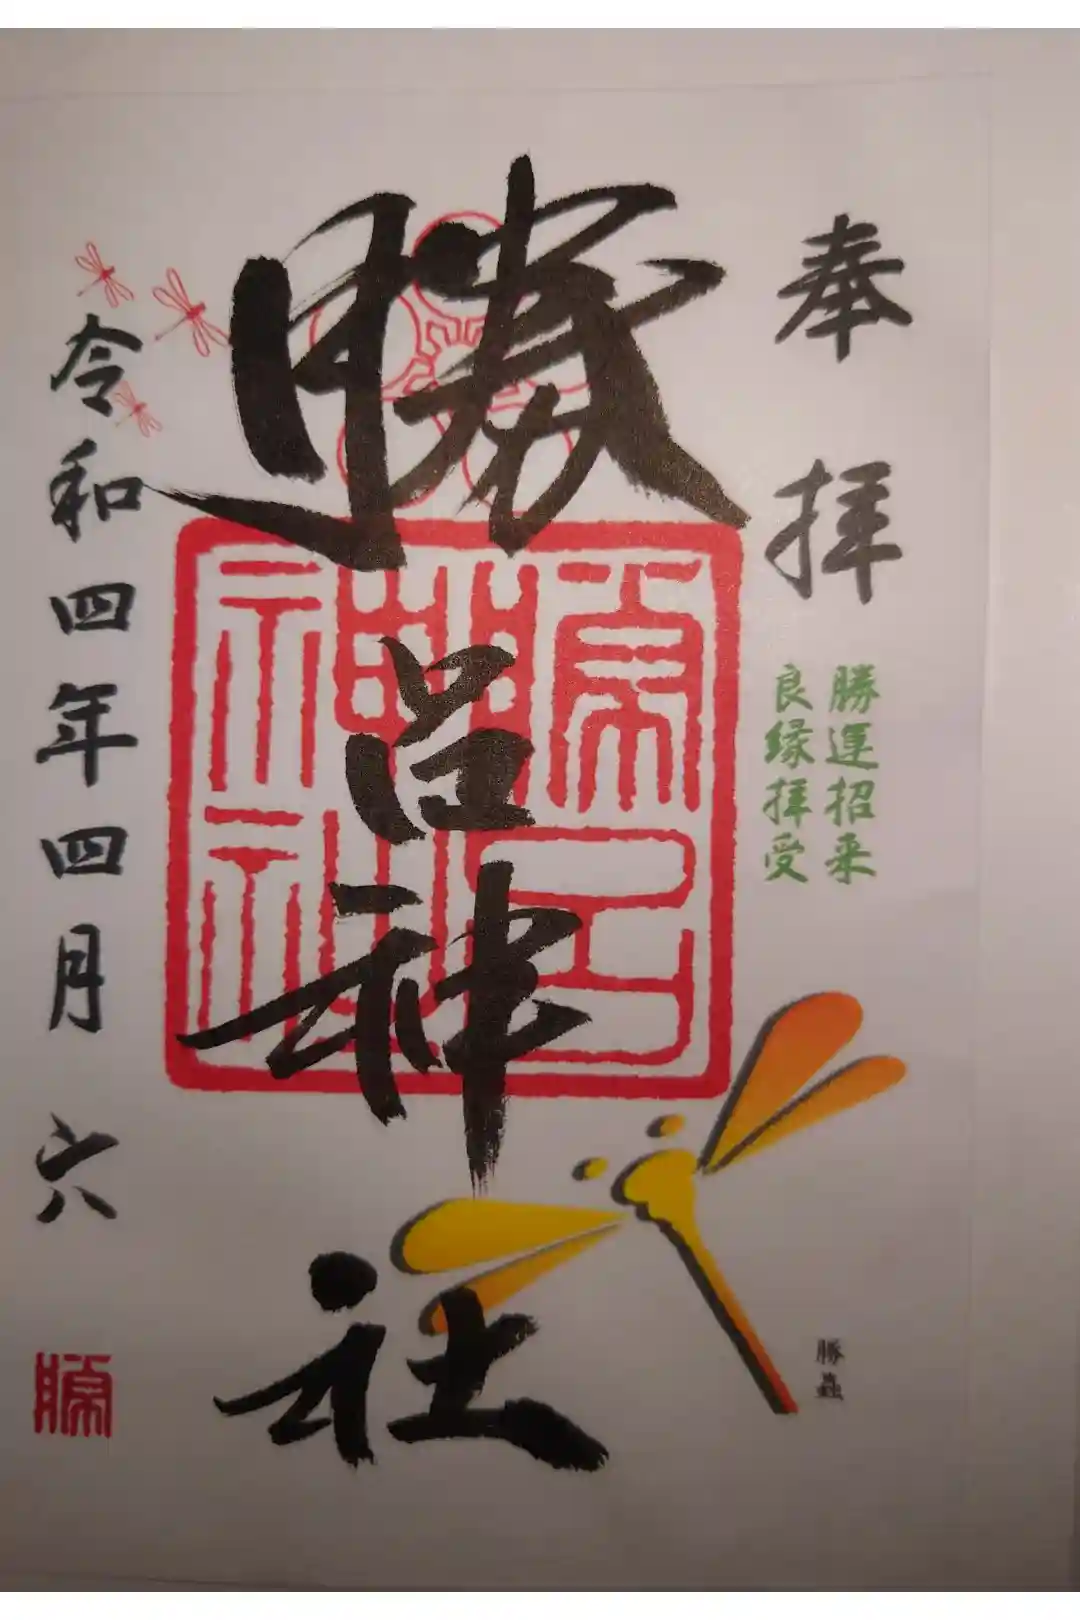 奉拝
勝運招来
良縁拝受
勝呂神社
勝呂神社
勝蟲
令和四年四月六
勝